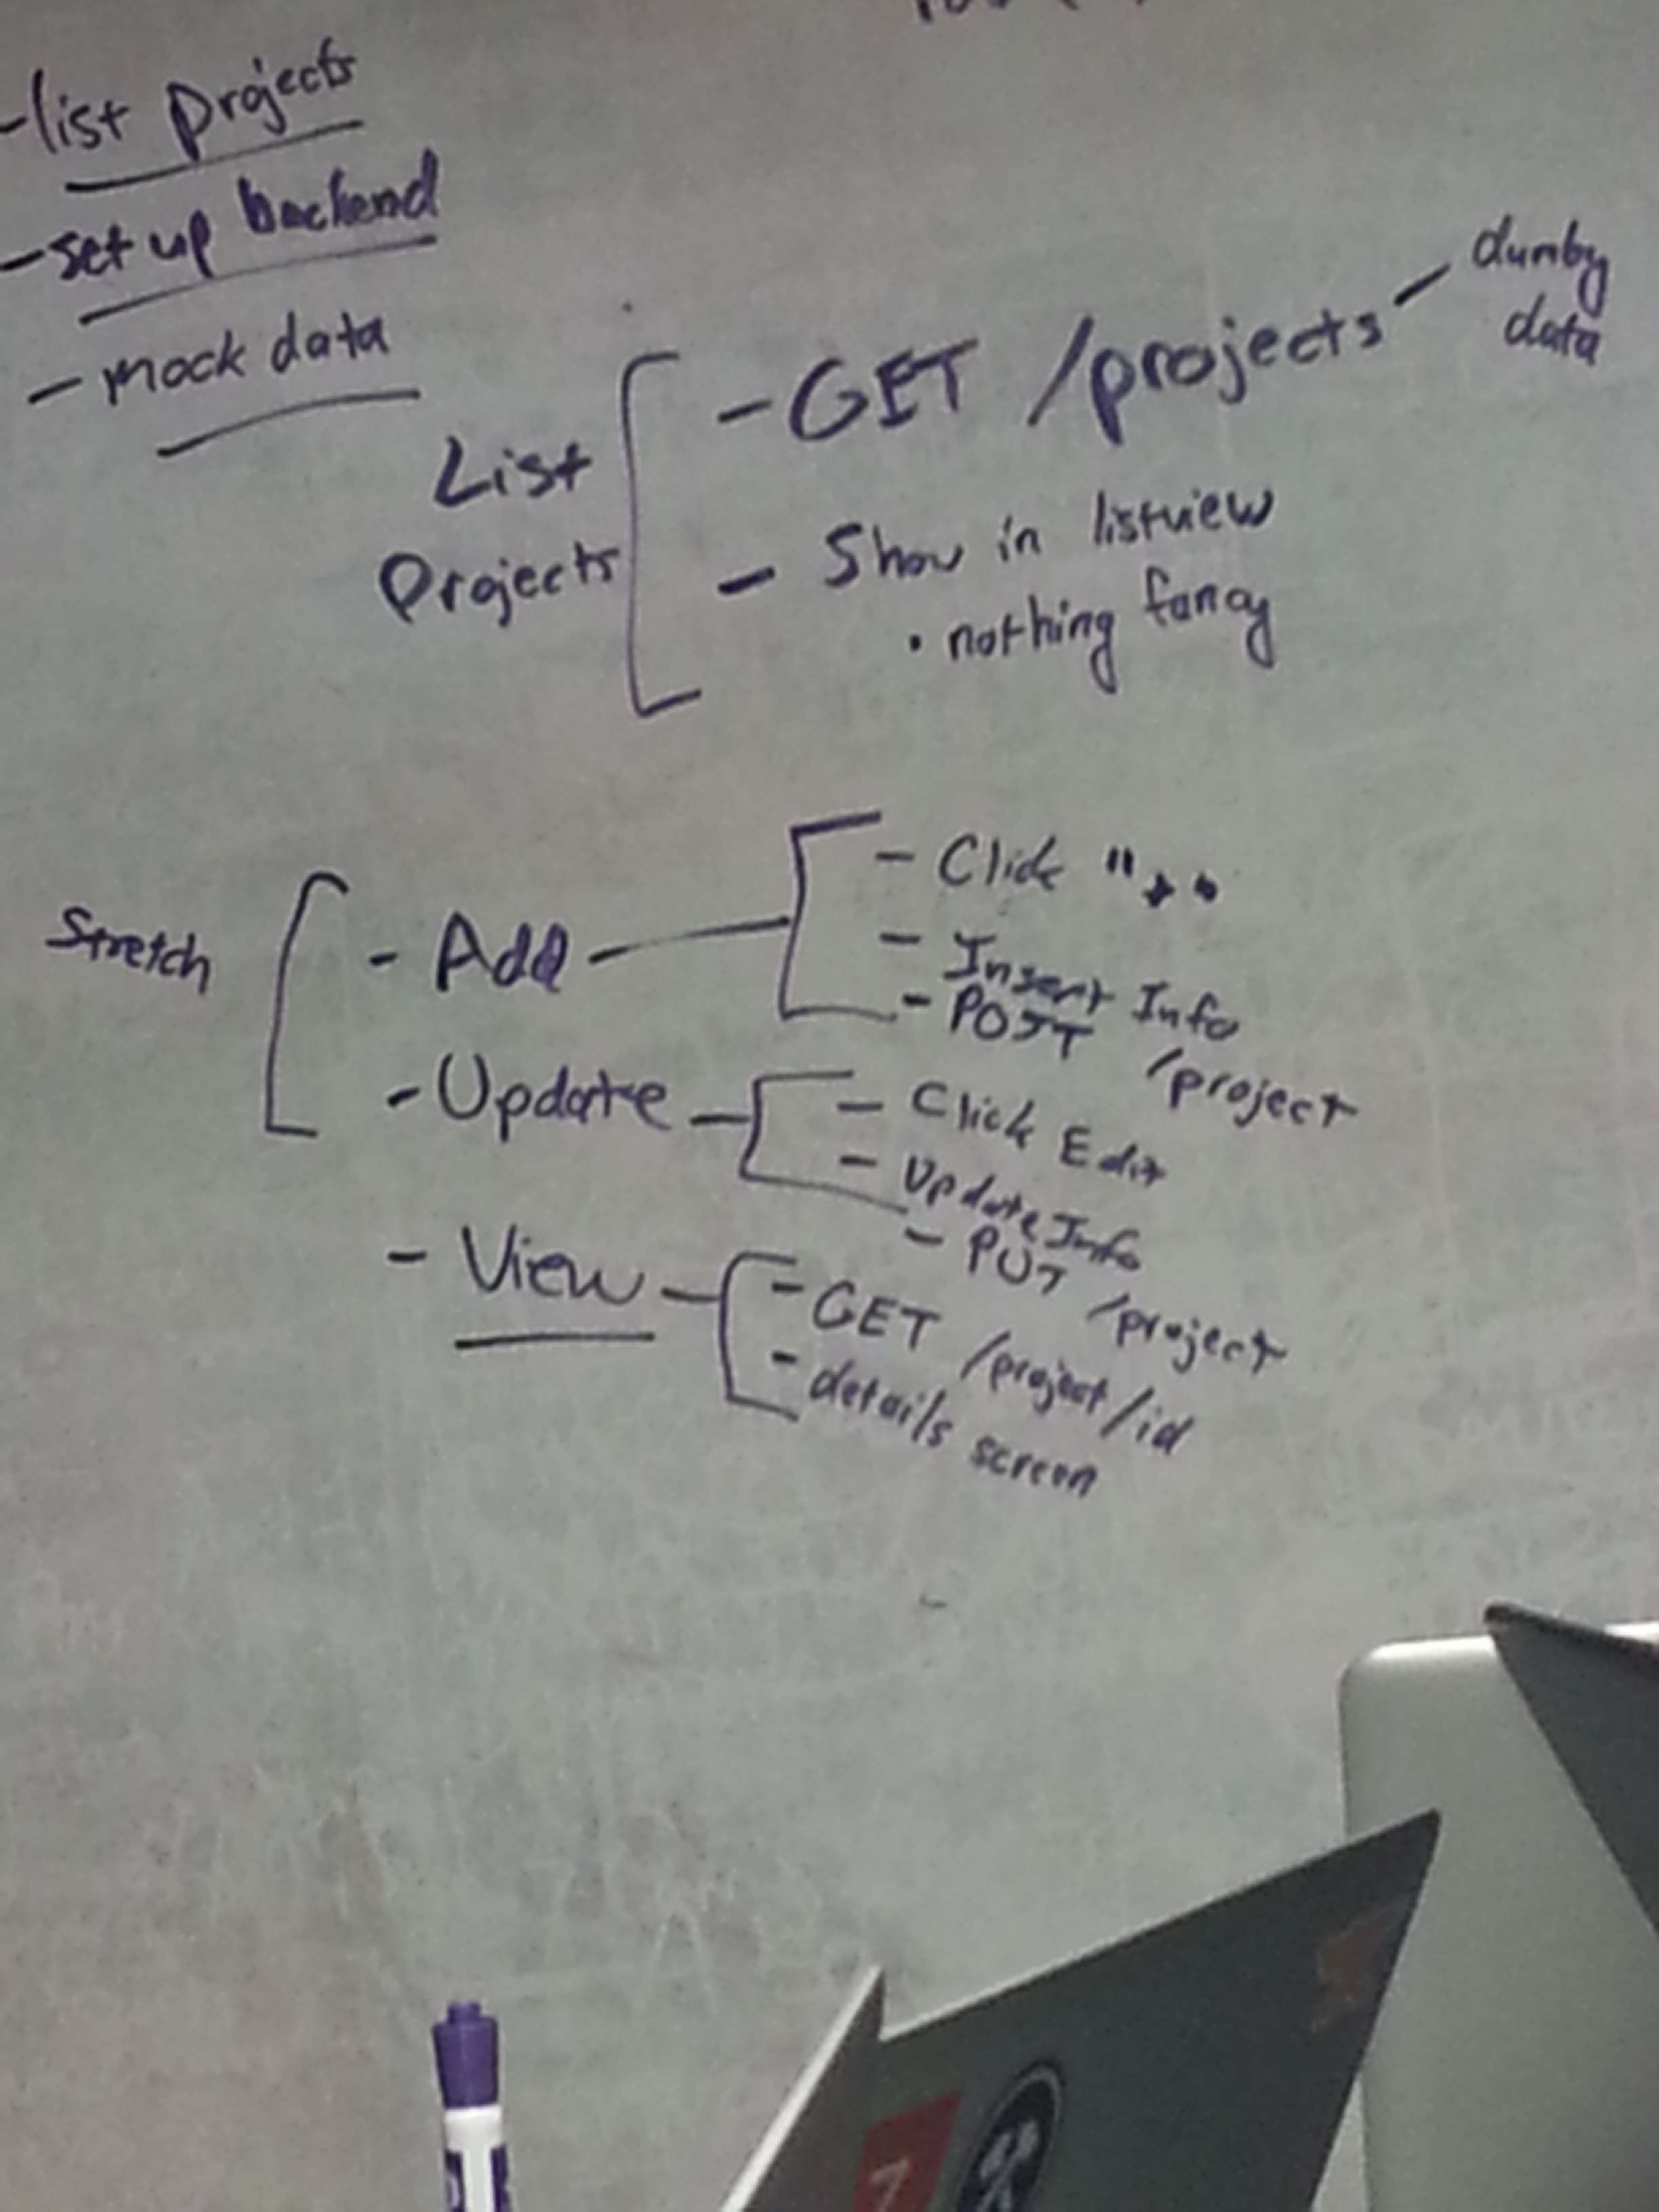 - list projects
- set up backend
- mock data
List
Projects
- GET /projects - dumby
data
- Show in listview
• nothing fancy
Stretch
- Add
- Click "+"
- Insert Info
- POST /project
- Update
- Click Edit
- Update Info
- PUT /project
- View
- GET /project/id
- details screen